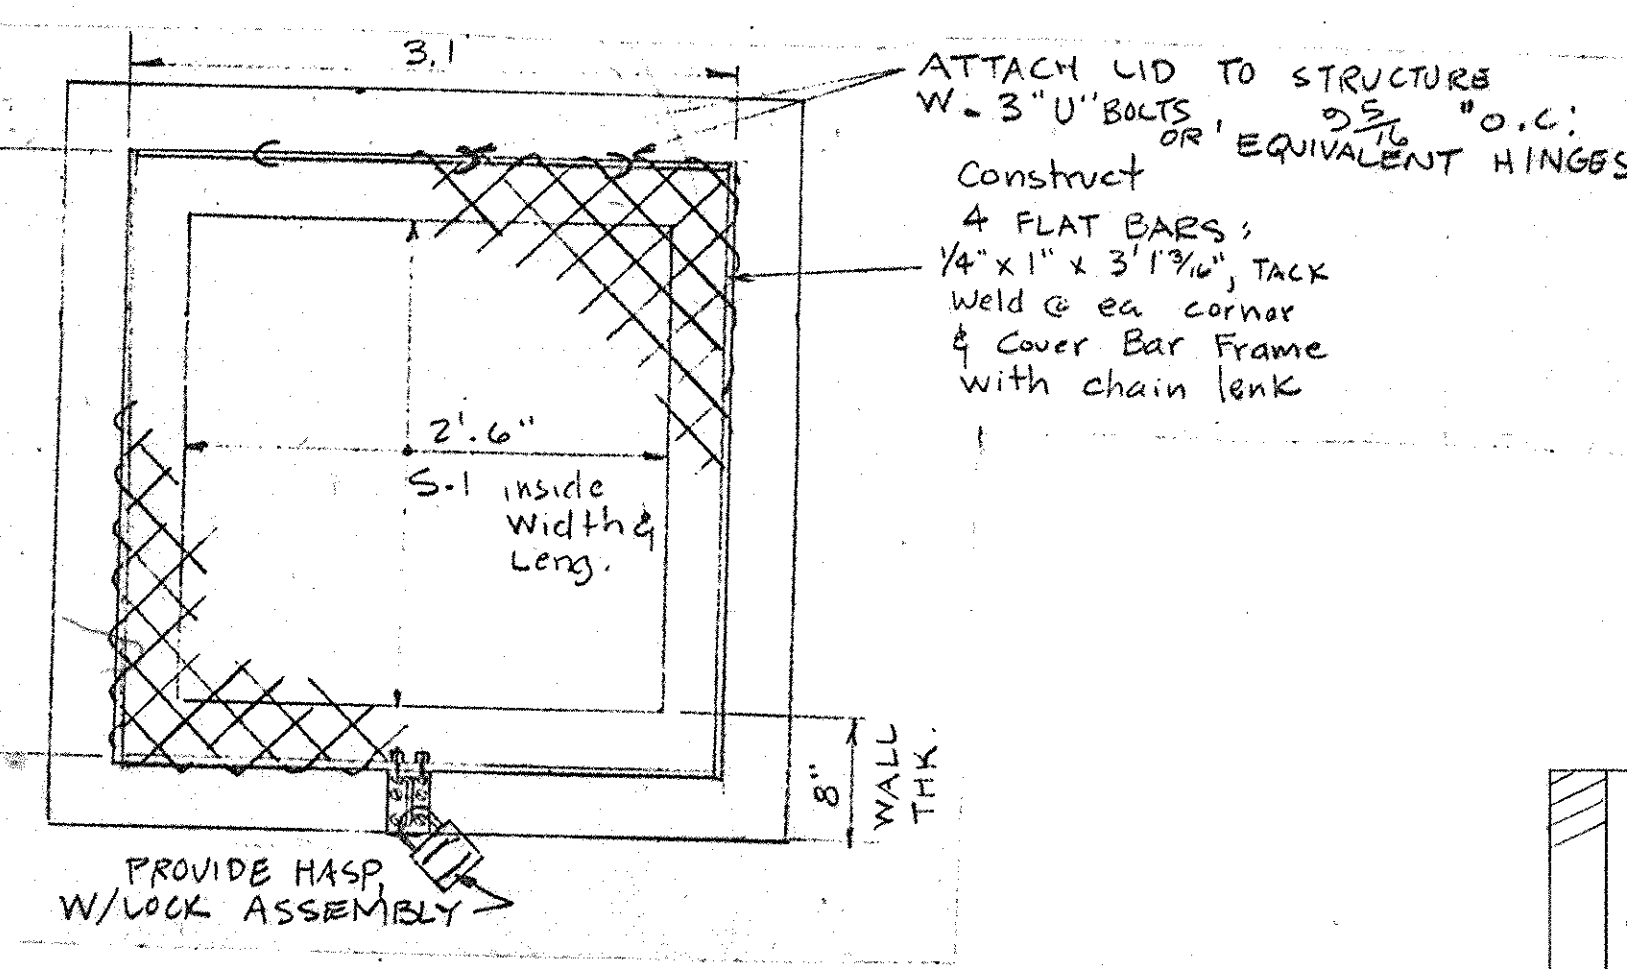 3.1'
ATTACH LID TO STRUCTURE
W. 3 "U" BOLTS, 9 5/16 "O.C.
OR EQUIVALENT HINGES
Construct
4 FLAT BARS;
1/4" x 1" x 3' 1 3/16", TACK
Weld @ ea corner
& Cover Bar Frame
with chain lenk
2'.6"
S-1 inside
Width &
Leng.
8"
WALL
THK.
PROVIDE HASP,
W/LOCK ASSEMBLY